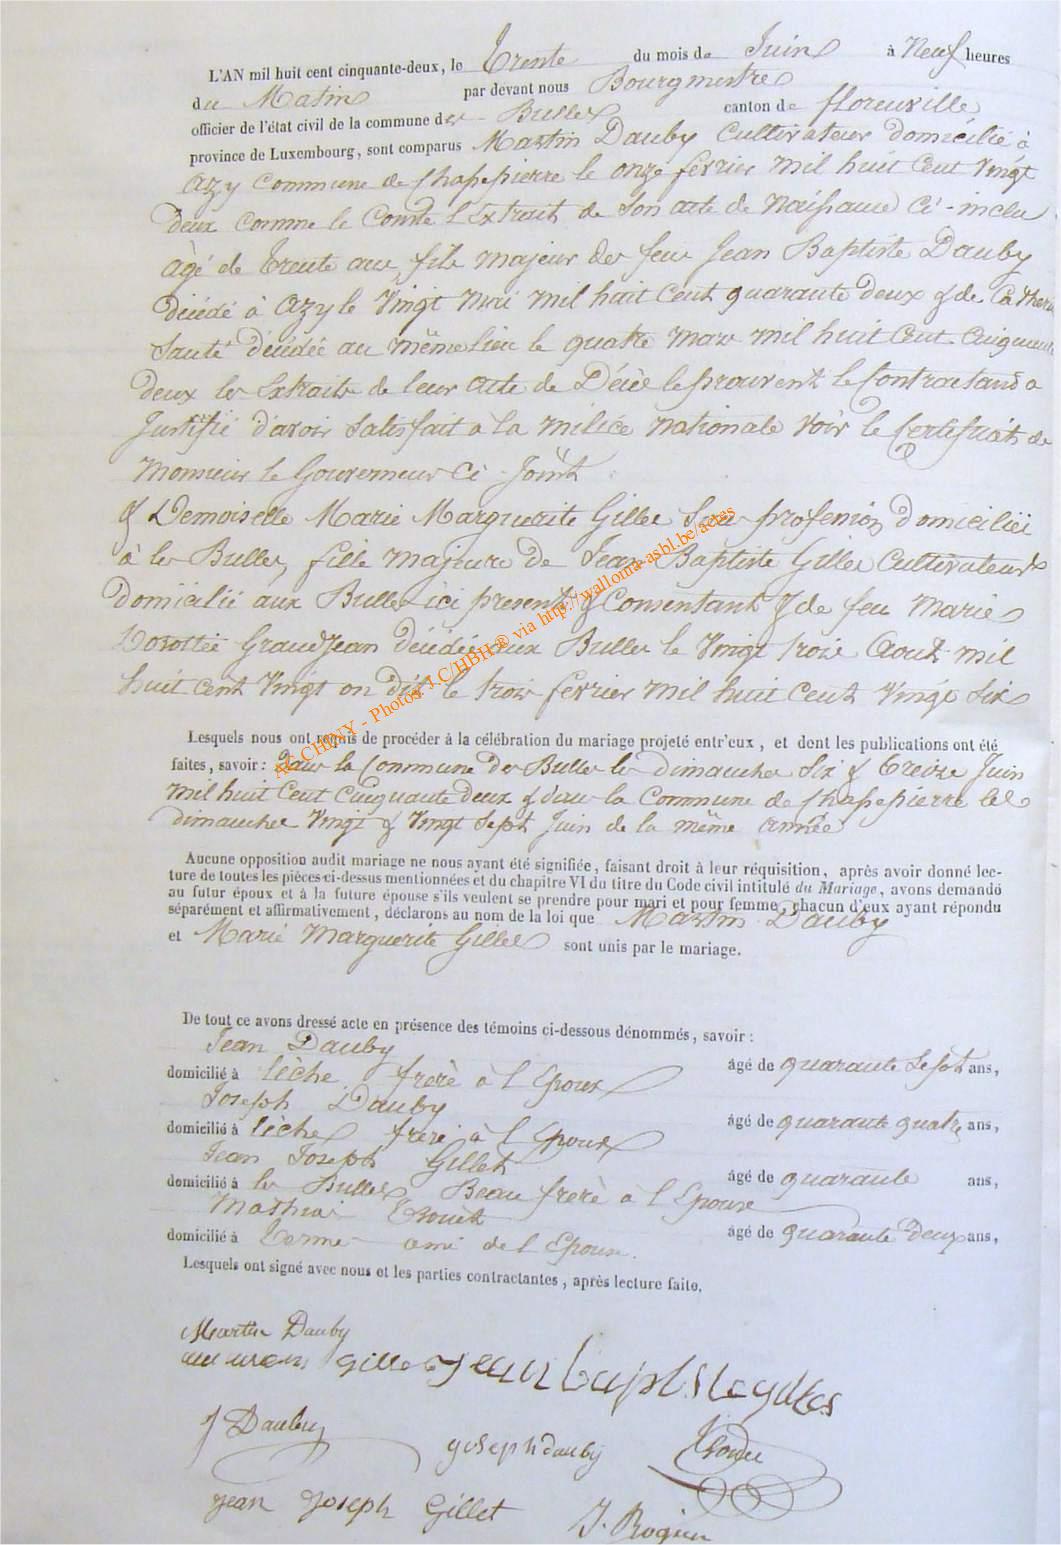 L'AN mil huit cent cinquante-deux, le Trente du mois de Juin à Neuf heures
du Matin par devant nous Bourgmestre
officier de l'état civil de la commune des Bulles canton de florenville
province de Luxembourg, sont comparus Martin Dauby Cultivateur domicilié à
Azy Commune de Chassepierre le onze février mil huit Cent Vingt
deux comme le Conste l'Extrait de Son acte de Naissance Ci-inclu
âgé de Trente ans, fils majeur de feu Jean Baptiste Dauby
décédé à Azy le Vingt Mai mil huit Cent quarante deux & de Catherine
décédée au même Lieu le quatre mars mil huit Cent Cinquante
deux les Extraits de leur acte de Décès le prouvent le Contractant a
Justifié d'avoir Satisfait a la milice Nationale Voir le Certificat de
Monsieur le Gouverneur Ci-Joint
& Demoiselle Marie Marguerite Gilles Sans profession domiciliée
à les Bulles, fille majeure de Jean Baptiste Gilles Cultivateur
domicilié aux Bulles ici présent & Consentant & de feu Marie
Dorothée Grandjean décédée aux Bulles le Vingt trois Aout mil
huit Cent Vingt on dit le trois février mil huit Cent Vingt Six
Lesquels nous ont requis de procéder à la célébration du mariage projeté entr'eux, et dont les publications ont été
faites, savoir : dans la Commune des Bulles les dimanches Six & Treize Juin
mil huit Cent Cinquante Deux & dans la Commune de Chassepierre les
dimanches Vingt & Vingt Sept Juin de la même année
Aucune opposition audit mariage ne nous ayant été signifiée, faisant droit à leur réquisition, après avoir donné lec-
ture de toutes les pièces ci-dessus mentionnées et du chapitre VI du titre du Code civil intitulé du Mariage, avons demandé
au futur époux et à la future épouse s'ils veulent se prendre pour mari et pour femme, chacun d'eux ayant répondu
séparément et affirmativement, déclarons au nom de la loi que Martin Dauby
et Marie Marguerite Gilles sont unis par le mariage.
De tout ce avons dressé acte en présence des témoins ci-dessous dénommés, savoir :
Jean Dauby
domicilié à lèche frère à l'Epoux âgé de quarante Sept ans,
Joseph Dauby
domicilié à lèche frère à l'Epoux âgé de quarante quatre ans,
Jean Joseph Gillet
domicilié à les Bulles Beau frère à l'Epouse âgé de quarante ans,
domicilié à Termes ami de l'Epoux. âgé de quarante Deux ans,
Lesquels ont signé avec nous et les parties contractantes, après lecture faite.
Martin Dauby
gilles Jean baptiste gilles
J Dauby
joseph dauby
jean Joseph Gillet
AC CHINY - Photos: J.C/HBH® via http://wallonia-asbl.be/actes